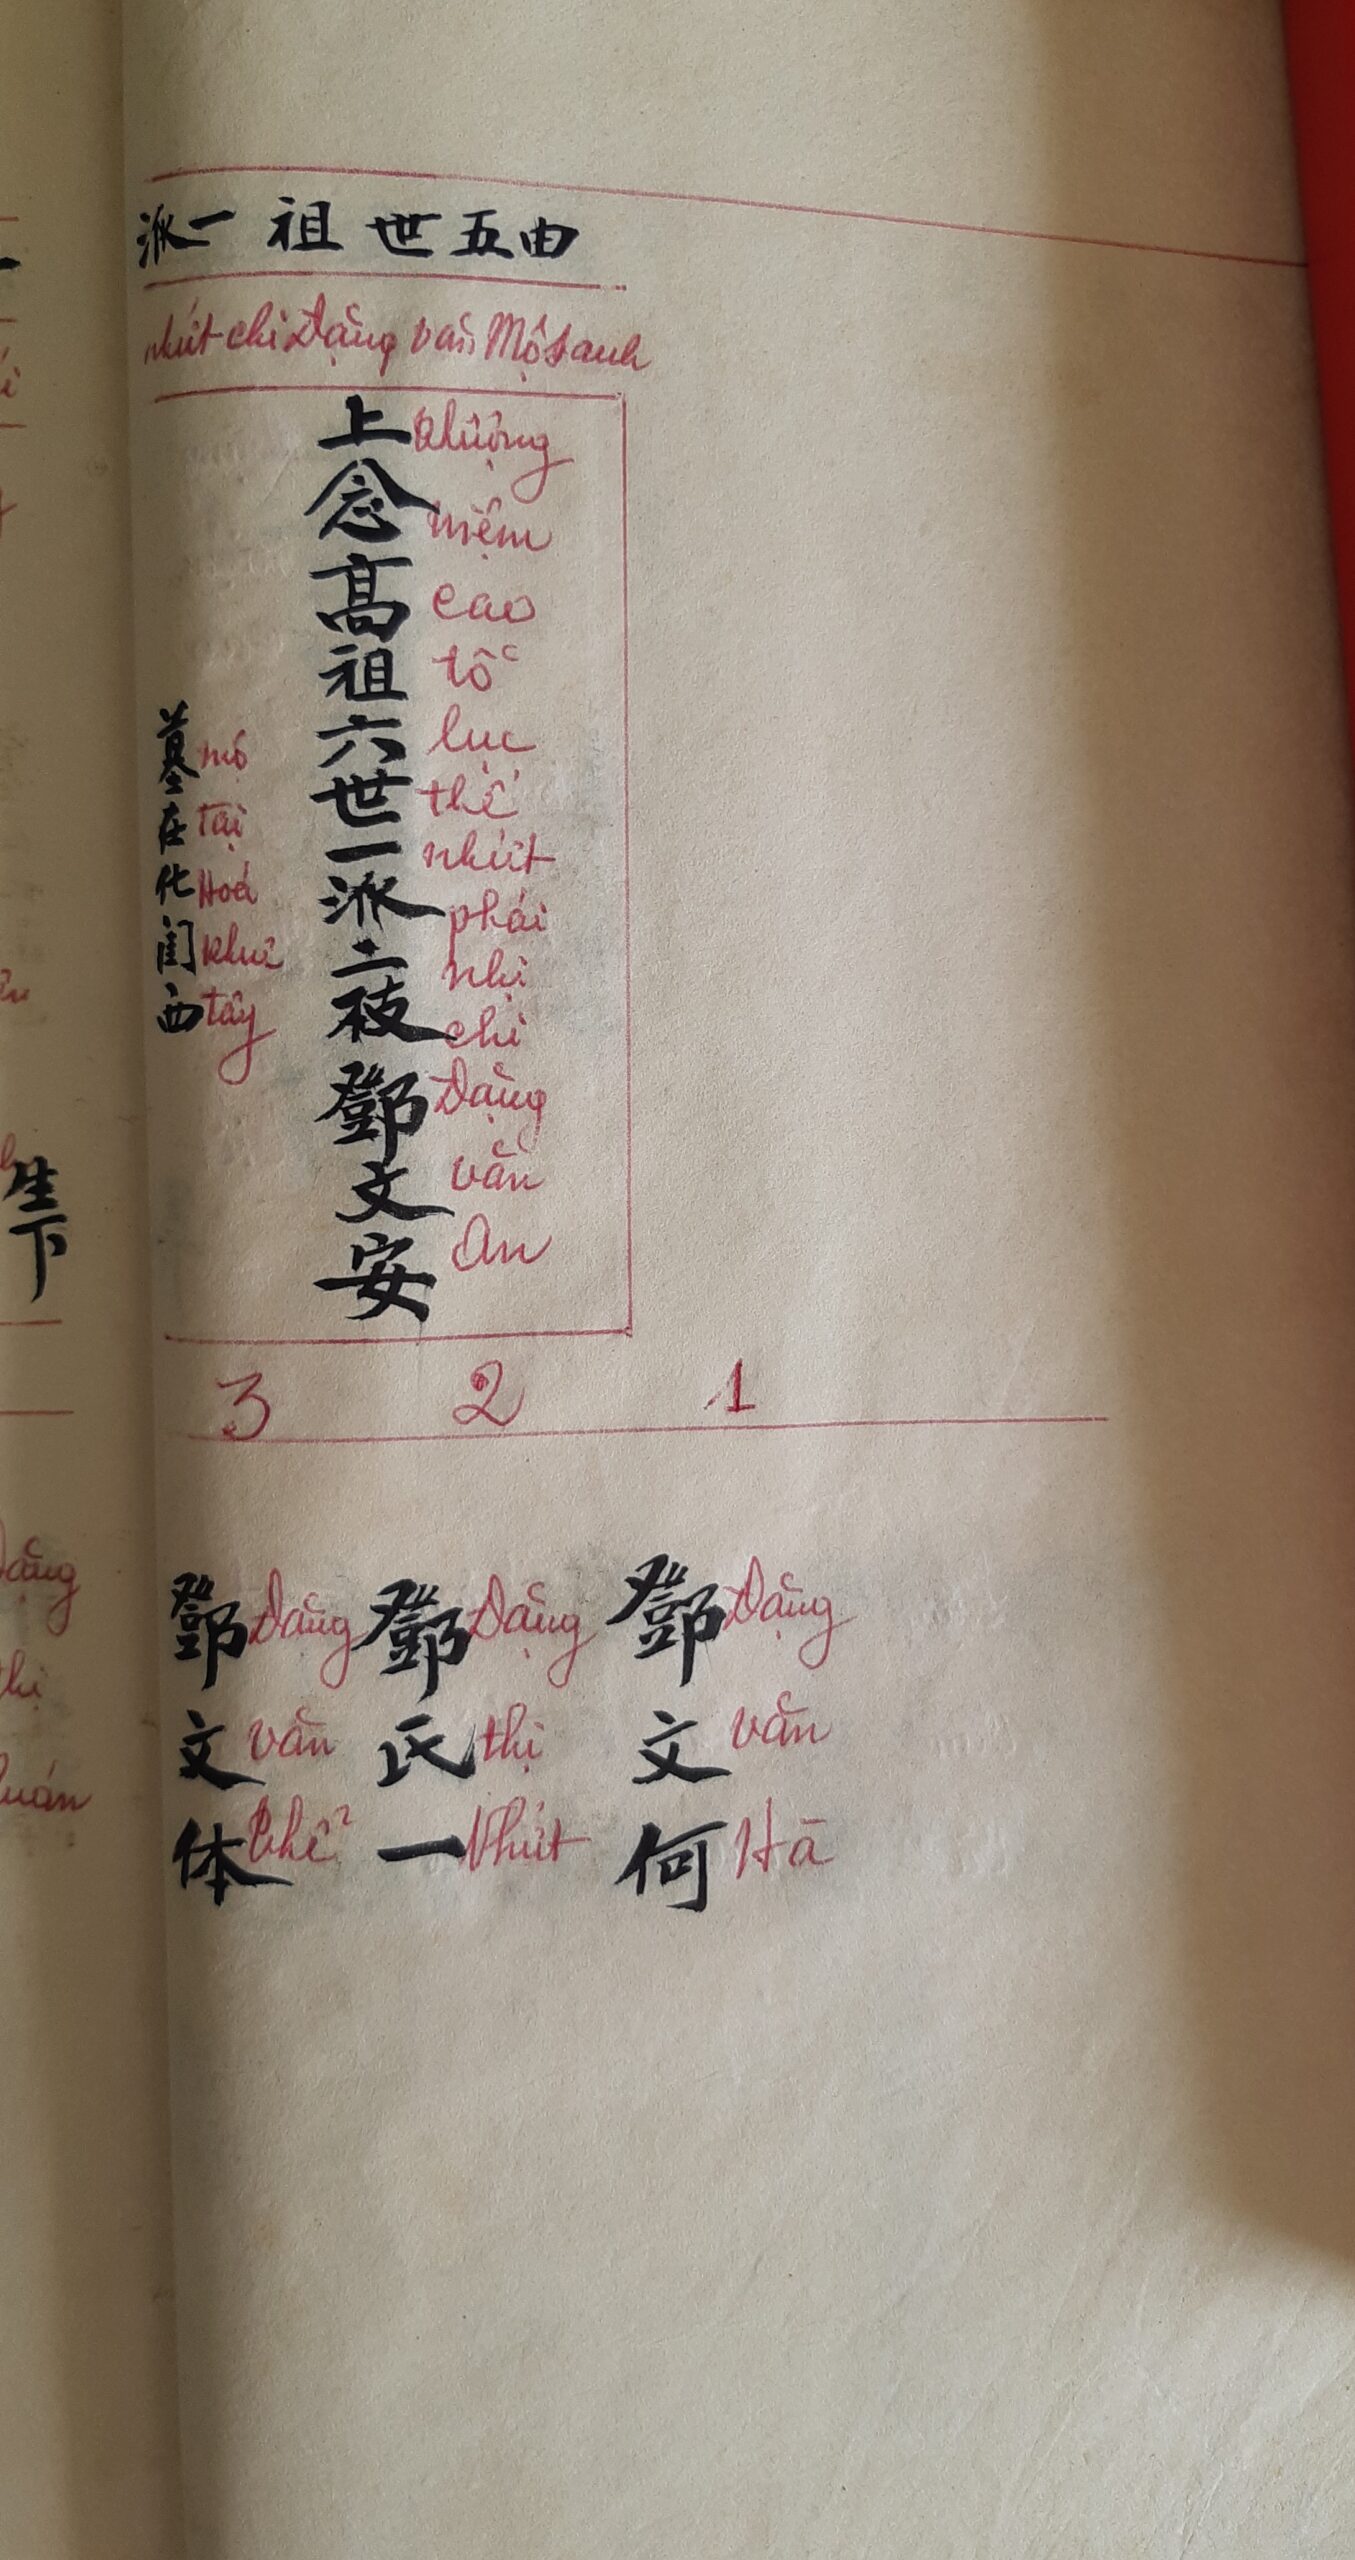 派一 祖 世 五 由
nhứt chi Đặng văn Một sanh
上念高祖六世一派二枝鄧文安
thượng niệm cao tổ lục thế nhứt phái nhị chi Đặng văn An
墓在化閨西
mộ tại Hoá khuê tây
3 2 1
鄧文何
Đặng văn Hà
鄧氏一
Đặng thị Nhứt
鄧文体
Đặng văn Thể
生下